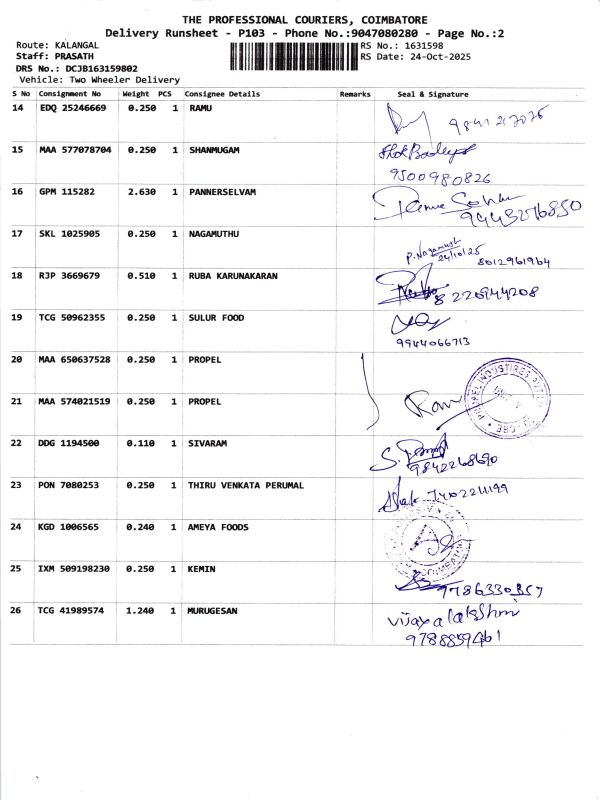 THE PROFESSIONAL COURIERS, COIMBATORE
Delivery Runsheet - P103 - Phone No.:9047080280 - Page No.:2
Route: KALANGAL RS No.: 1631598
Staff: PRASATH RS Date: 24-Oct-2025
DRS No.: DCJB163159802
Vehicle: Two Wheeler Delivery
S No Consignment No Weight PCS Consignee Details Remarks Seal & Signature
14 EDQ 25246669 0.250 1 RAMU
15 MAA 577078704 0.250 1 SHANMUGAM
9500980826
16 GPM 115282 2.630 1 PANNERSELVAM
9443276850
17 SKL 1025905 0.250 1 NAGAMUTHU
P. Nagamuth
24/10/25 8012961964
18 RJP 3669679 0.510 1 RUBA KARUNAKARAN
8220944208
19 TCG 50962355 0.250 1 SULUR FOOD
9944066713
20 MAA 650637528 0.250 1 PROPEL
21 MAA 574021519 0.250 1 PROPEL
Ram
22 DDG 1194500 0.110 1 SIVARAM
9842268690
23 PON 7080253 0.250 1 THIRU VENKATA PERUMAL
24 KGD 1006565 0.240 1 AMEYA FOODS
25 IXM 509198230 0.250 1 KEMIN
9786330357
26 TCG 41989574 1.240 1 MURUGESAN
vijayalakshmi
9788859461